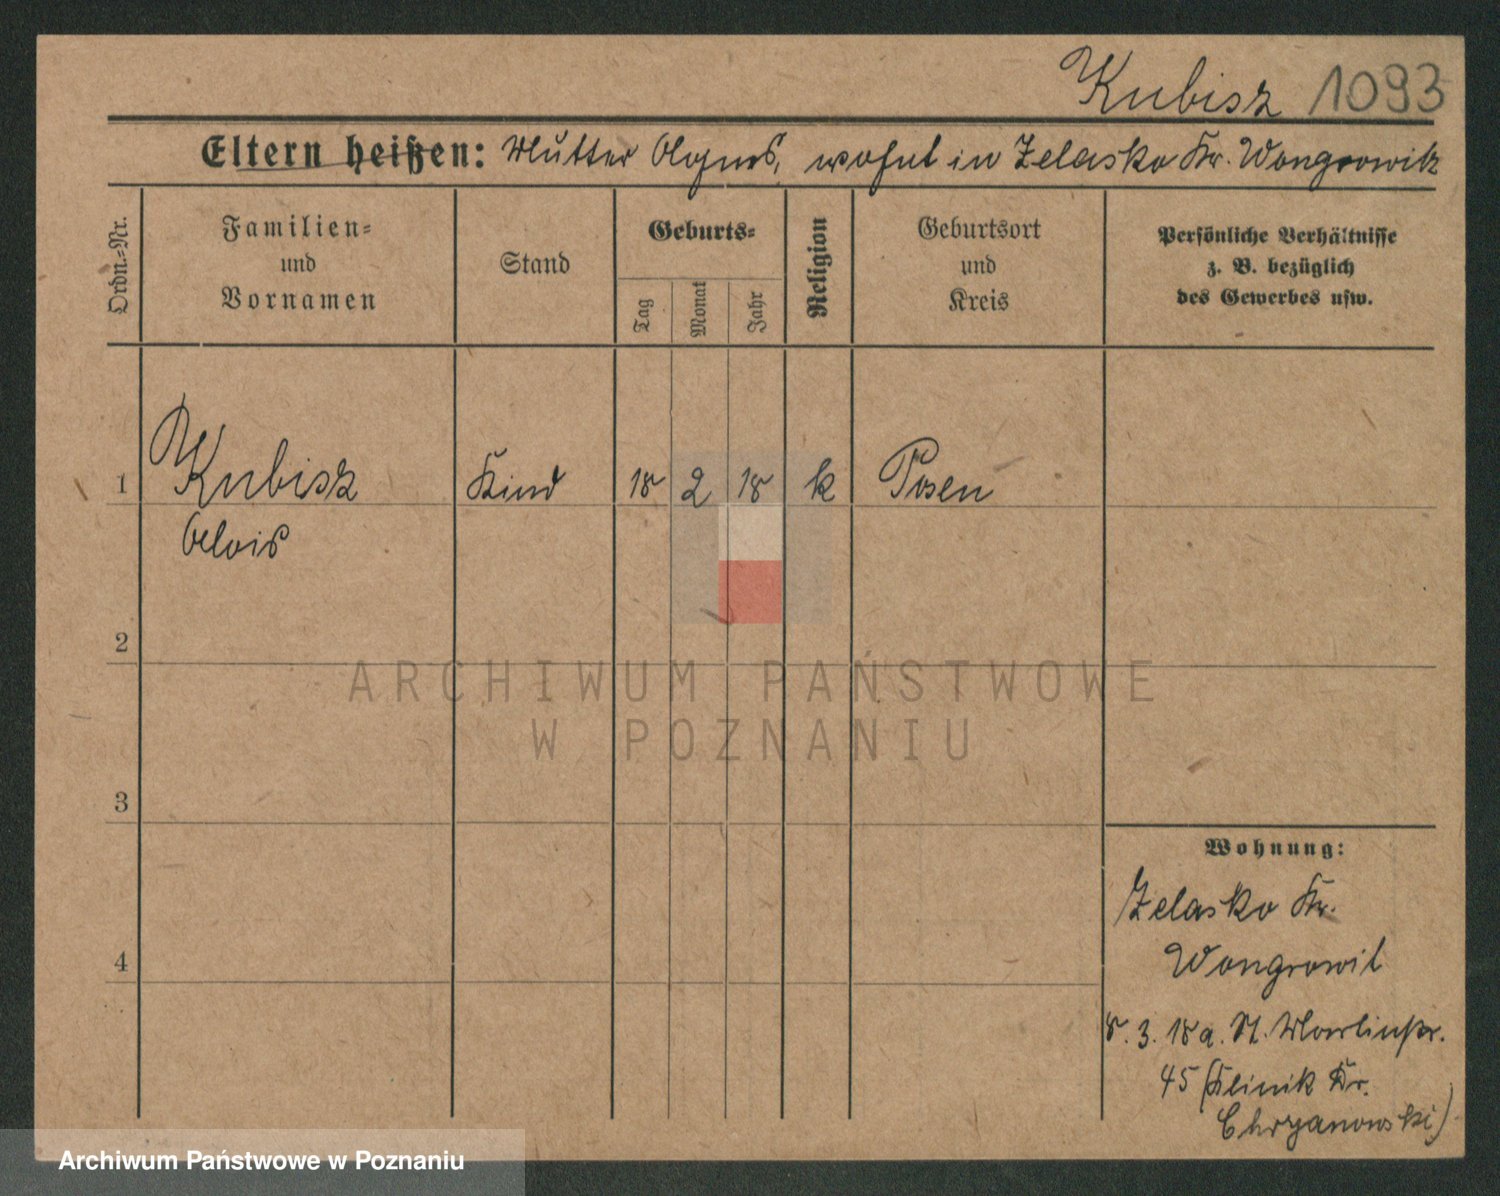 Kubisz 1093
Eltern heißen: Mutter Agnes, wohnt in Zelasko Kr. Wongrowitz
Ordn.-Nr.
Familien-
und
Vornamen
Stand
Geburts-
Tag
Monat
Jahr
Religion
Geburtsort
und
Kreis
Persönliche Verhältnisse
z. B. bezüglich
des Gewerbes usw.
1 Kubisz Kind 18 2 18 k Posen
Alois
2
3
4
Wohnung:
Zelasko Kr.
Wongrowit
8. 3. 18 a. St. Martinstr.
45 (Klinik Dr.
Chrzanowski)
ARCHIWUM PAŃSTWOWE
W POZNANIU
Archiwum Państwowe w Poznaniu